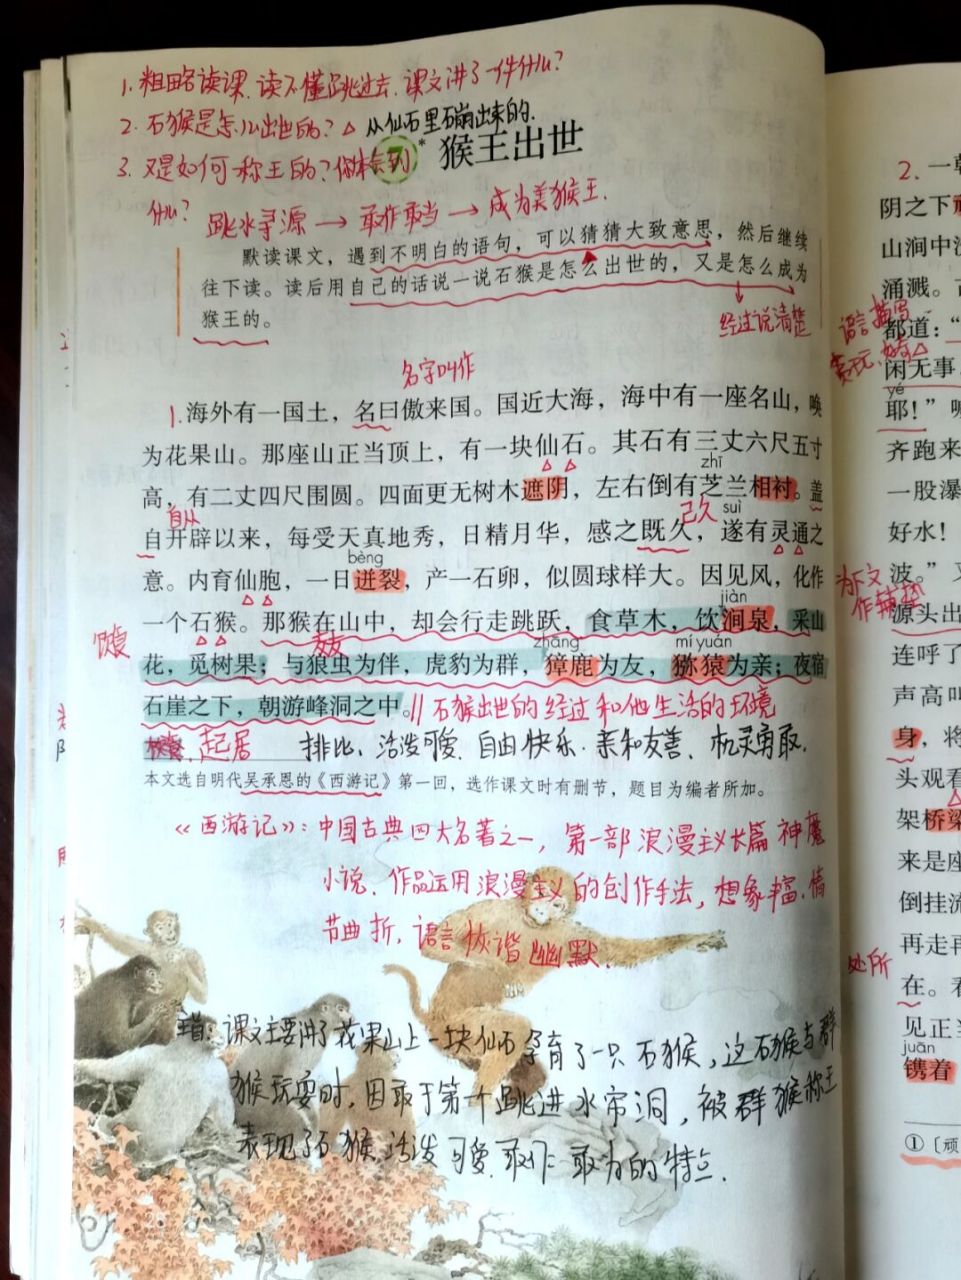 1. 粗略读课,读不懂跳过去,课文讲了一件什么?
2. 石猴是怎么出世的? △ 从仙石里石崩出来的.
7* 猴王出世
3. 又是如何称王的?你体会到
什么?
跳水寻源 → 敢作敢当 → 成为美猴王.
默读课文,遇到不明白的语句,可以猜猜大致意思,然后继续
往下读。读后用自己的话说一说石猴是怎么出世的,又是怎么成为
猴王的。
经过说清楚
名字叫作
1.海外有一国土,名曰傲来国。国近大海,海中有一座名山,唤
为花果山。那座山正当顶上,有一块仙石。其石有三丈六尺五寸
zhī
高,有二丈四尺围圆。四面更无树木遮阴,左右倒有芝兰相衬。盖
自从
已久
suì
自开辟以来,每受天真地秀,日精月华,感之既久,遂有灵通之
bèng
意。内育仙胞,一日迸裂,产一石卵,似圆球样大。因见风,化作
jiàn
一个石猴。那猴在山中,却会行走跳跃,食草木,饮涧泉,采山
zhāng
mí yuán
花,觅树果;与狼虫为伴,虎豹为群,獐鹿为友,猕猿为亲;夜宿
石崖之下,朝游峰洞之中。
// 石猴出世的经过和他生活的环境
起居
排比、活泼可爱、自由快乐、亲和友善、机灵勇敢.
本文选自明代吴承恩的《西游记》第一回,选作课文时有删节,题目为编者所加。
《西游记》:中国古典四大名著之一,第一部浪漫主义长篇神魔
小说、作品运用浪漫主义的创作手法,想象丰富,情
节曲折,语言诙谐幽默.
主旨:课文主要讲了花果山上一块仙石孕育了一只石猴,这石猴与群
猴玩耍时,因敢于第一个跳进水帘洞,被群猴称王
表现了石猴活泼可爱、敢作敢为的特点.
2. 一朝
阴之下
山涧中
涌溅。
语言描写
都道:“
闲无事
yé
耶!”
齐跑来
一股瀑
好水!
为下文
作铺垫
波。”
源头出
连呼了
声高叫
身,将
头观看
架桥梁
来是座
倒挂流
再走再
处所
在。看
见正当
juān
镌着
①〔顽